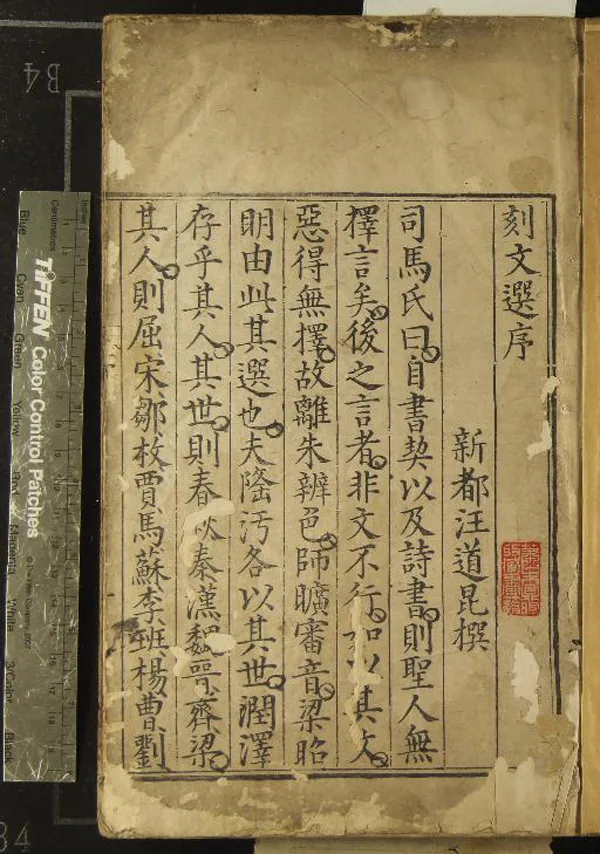 刻文選序
新都汪道昆撰
司馬氏曰自書契以及詩書則聖人無
擇言矣後之言者非文不行如以其文
惡得無擇故離朱辨色師曠審音梁昭
明由此其選也夫隆汚各以其世潤澤
存乎其人其世則春秋秦漢魏晉齊梁
其人則屈宋鄒枚賈馬蘇李班楊曹劉
B4
Inches
Centimetres
TIFFEN Color Control Patches
Blue
Cyan
Green
Yellow
Red
Magenta
White
3/Color
Black
B4